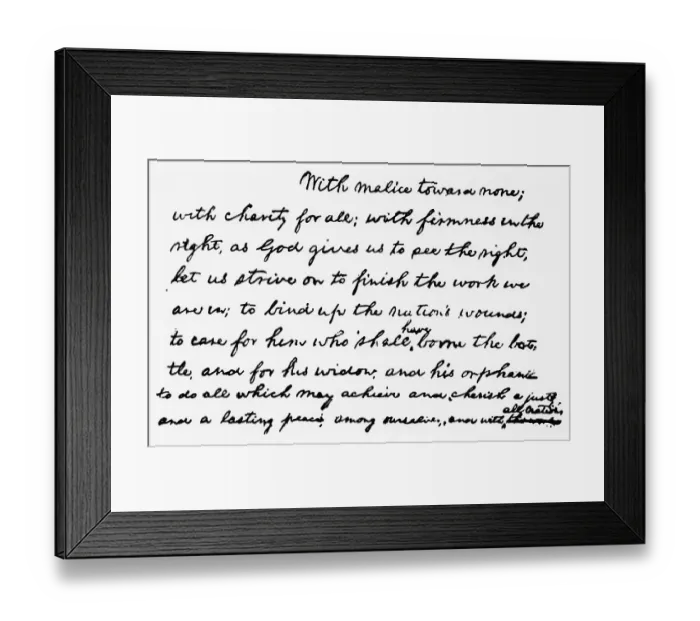 With malice toward none;
with charity for all; with firmness in the
right, as God gives us to see the right,
let us strive on to finish the work we
are in; to bind up the nation's wounds;
to care for him who shall have borne the bat-
tle, and for his widow, and his orphan—
to do all which may achieve and cherish a just,
and a lasting peace, among ourselves, and with all nations.